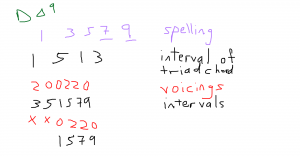 D△9
1 3 5 7 9 spelling
1 5 1 3 interval of
triad chord
200220 voicings
351579 intervals
xx0220
1579